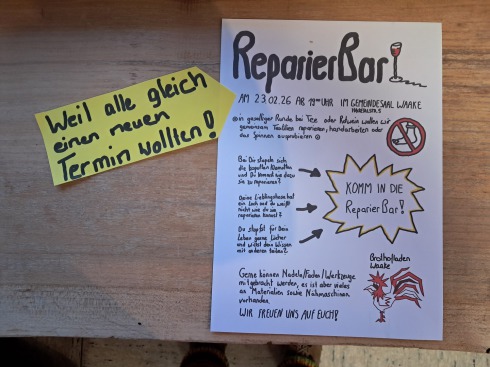 Weil alle gleich
einen neuen
Termin wollten!
ReparierBar!
AM 23.02.26 AB 19°° UHR IM GEMEINDESAAL WAAKE
in geselliger Runde bei Tee oder Rotwein wollen wir
gemeinsam Textilien reparieren, handarbeiten oder
das Spinnen ausprobieren
Bei Dir stapeln sich
die kaputten Klamotten
und Du kommst nie dazu
sie zu reparieren?
Deine Lieblingshose hat
ein Loch und du weißt
nicht wie du sie
reparieren kannst?
Du stopfst für Dein
Leben gerne Löcher
und willst dein Wissen
mit anderen teilen?
KOMM IN DIE
ReparierBar!
Brothofladen
Waake
Gerne können Nadeln/Faden/Werkzeuge
mitgebracht werden, es ist aber vieles
an Materialien sowie Nähmaschinen
vorhanden.
WIR FREUEN UNS AUF EUCH!